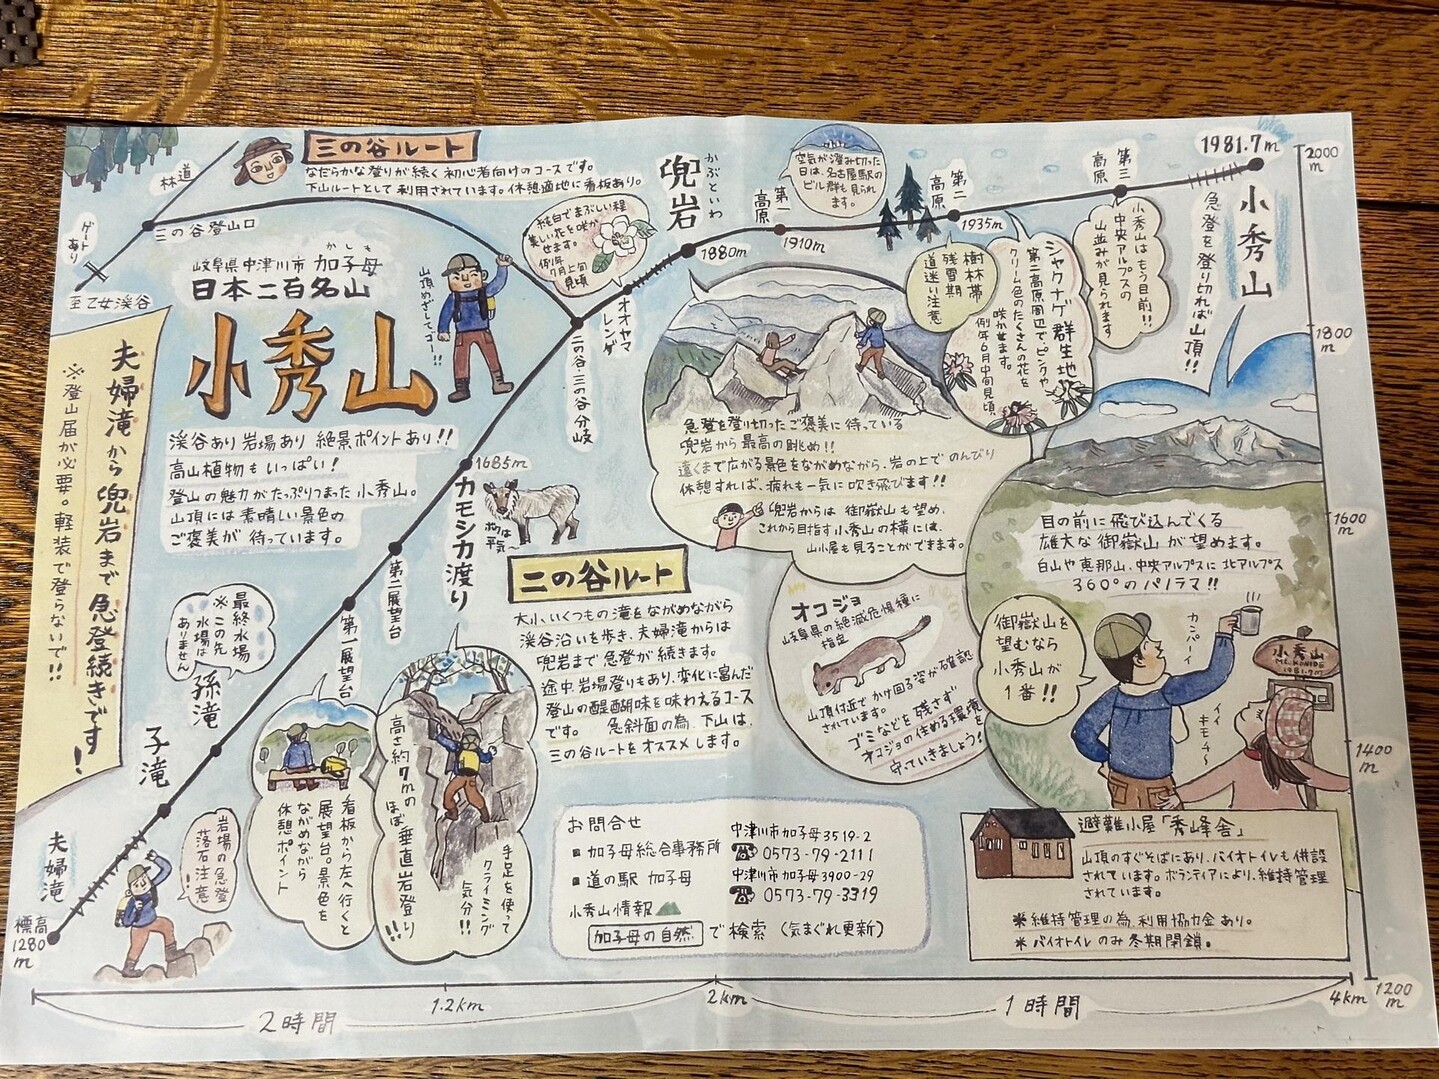 三の谷ルート
なだらかな登りが続く初心者向けのコースです。
下山ルートとして利用されています。休憩適地に看板あり。
林道
ゲートあり
三の谷登山口
至乙女渓谷
岐阜県中津川市 加子母
かしも
日本二百名山
小秀山
渓谷あり 岩場あり 絶景ポイントあり!!
高山植物もいっぱい!
登山の魅力がたっぷりつまった小秀山。
山頂には素晴しい景色の
ご褒美が待っています。
山頂めざしてゴー!!
夫婦滝から兜岩まで急登続きです!
※登山届が必要。軽装で登らないで!!
純白でまぶしい程
美しい花を咲か
せます。
例年
7月上旬
見頃
オオヤマ
レンゲ
二の谷・三の谷分岐
兜岩
かぶといわ
1880m
第一
高原
1910m
空気が澄み切った
日は、名古屋駅の
ビル群も見られ
ます。
第二
高原
1935m
樹林帯
残雪期
道迷い注意
シャクナゲ群生地
第二高原周辺で、ピンクや
クリーム色のたくさんの花を
咲かせます。
例年6月中旬見頃
第三
高原
小秀山はもう目前!!
中央アルプスの
山並みが見られます
1981.7m
小秀山
急登を登り切れば山頂!!
2000
m
1800
m
1600
m
1400
m
1200
m
急登を登り切ったご褒美に待っている
兜岩から最高の眺め!!
遠くまで広がる景色をながめながら、岩の上でのんびり
休憩すれば、疲れも一気に吹き飛びます!!
兜岩からは 御嶽山も望め、
これから目指す小秀山の横には、
山小屋も見ることができます。
目の前に飛び込んでくる
雄大な御嶽山が望めます。
白山や恵那山、中央アルプスに北アルプス
360°のパノラマ!!
御嶽山を
望むなら
小秀山が
1番!!
カンパーイ
イイ
キモチ〜
小秀山
1981.7m
1685m
カモシカ渡り
ボクは
平気〜
第二展望台
第一展望台
最終水場
※この先
水場は
ありません
孫滝
子滝
夫婦滝
標高
1280
m
岩場の急登
落石注意
看板から左へ行くと
展望台。景色を
ながめながら
休憩ポイント
高さ約7mの
ほぼ垂直岩登り!!
手足を使って
クライミング
気分!!
二の谷ルート
大小、いくつもの滝をながめながら
渓谷沿いを歩き、夫婦滝からは
兜岩まで急登が続きます。
途中岩場登りもあり、変化に富んだ
登山の醍醐味を味わえるコース
です。 急斜面の為、下山は、
三の谷ルートをオススメします。
オコジョ
岐阜県の絶滅危惧種に
指定
山頂付近でかけ回る姿が確認
されています。
ゴミなどを残さず
オコジョの住める環境を
守っていきましょう!
お問合せ
■加子母総合事務所 中津川市加子母3519-2
☎0573-79-2111
■道の駅 加子母 中津川市加子母3900-29
☎0573-79-3319
小秀山情報
加子母の自然 で検索(気まぐれ更新)
避難小屋「秀峰舎」
山頂のすぐそばにあり、バイオトイレも併設
されています。ボランティアにより、維持管理
されています。
※維持管理の為、利用協力金あり。
※バイオトイレのみ冬期閉鎖。
1.2km
2km
4km
2時間
1時間